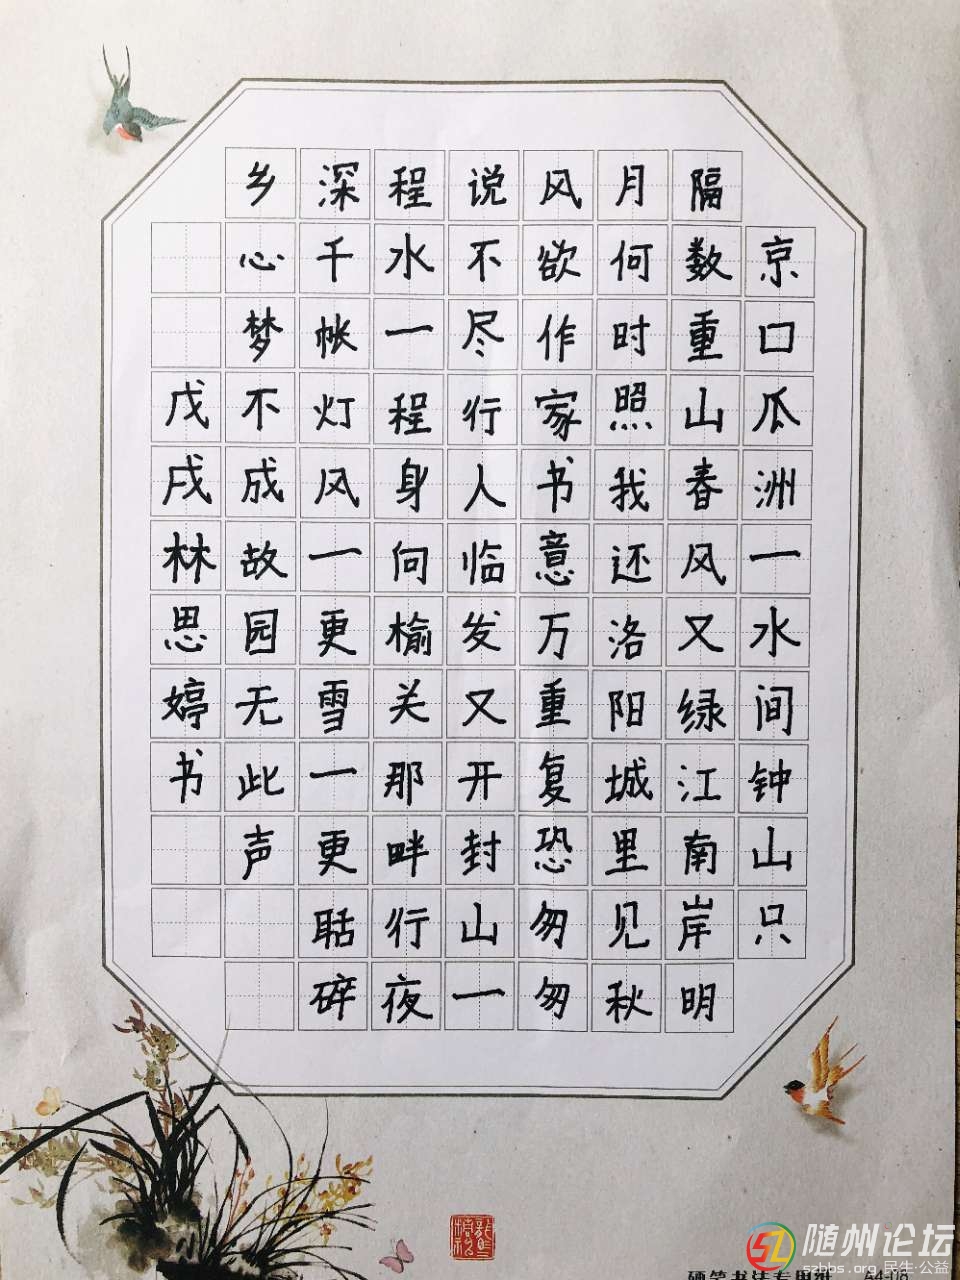 京口瓜洲一水间钟山只
隔数重山春风又绿江南岸明
月何时照我还洛阳城里见秋
风欲作家书意万重复恐匆匆
说不尽行人临发又开封山一
程水一程身向榆关那畔行夜
深千帐灯风一更雪一更聒碎
乡心梦不成故园无此声
戊戌林思婷书
随州论坛
szbbs.org 民生·公益